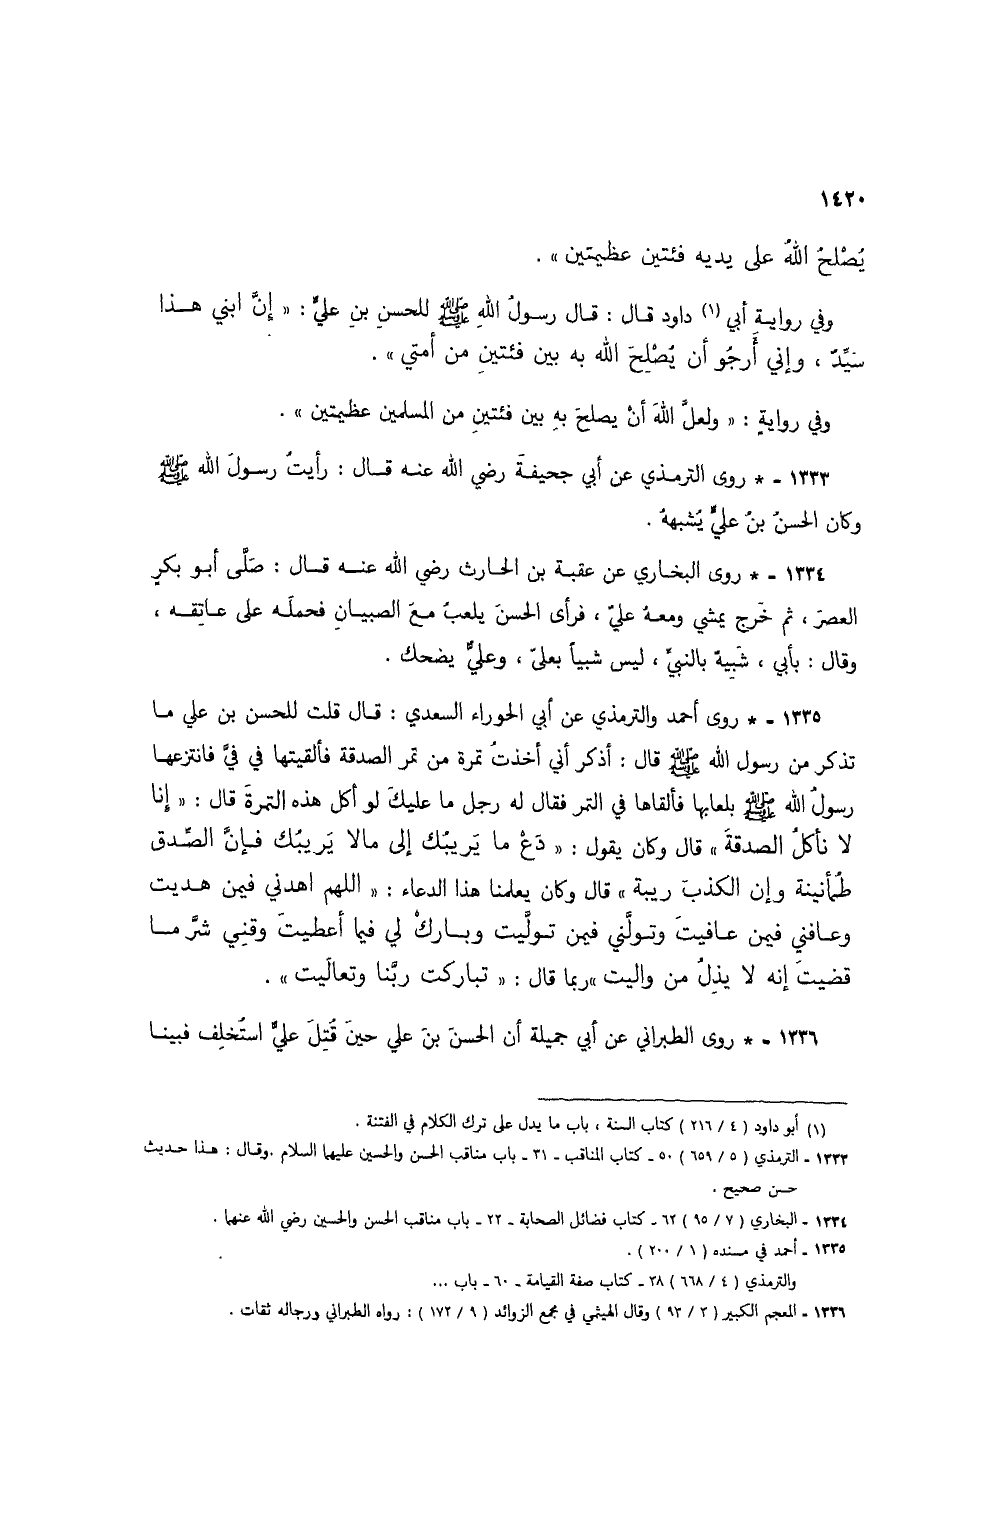 ١٤٢٠
يُصْلحُ اللهُ على يديه فئتين عظيمتين » .
وفي روايةِ أبي (١) داود قال : قال رسولُ اللهِ ﷺ للحسنِ بنِ عليٍّ : « إنَّ ابني هذا
سَيِّدٌ ، وإني أَرجُو أن يُصْلِحَ الله به بين فئتينِ من أمتي » .
وفي روايةٍ : « ولعلَّ اللهَ أنْ يصلحَ بهِ بين فئتينِ من المسلمين عظيمتين » .
١٣٣٣ - * روى الترمذي عن أبي جحيفةَ رضي الله عنه قال : رأيتُ رسولَ الله ﷺ
وكان الحسنُ بنُ عليٍّ يُشبههُ .
١٣٣٤ - * روى البخاري عن عقبة بن الحارث رضي الله عنه قال : صَلَّى أبو بكرٍ
العصرَ ، ثم خَرج يمشي ومعهُ عليّ ، فرأى الحسنَ يلعبُ معَ الصبيانِ فحملَه على عاتِقه ،
وقال : بأبي ، شَبِيهٌ بالنبيِّ ، ليس شبياً بعليّ ، وعليٌّ يضحك .
١٣٣٥ - * روى أحمد والترمذي عن أبي الحوراء السعدي : قال قلت للحسن بن علي ما
تذكر من رسول الله ﷺ قال : أذكر أني أخذتُ تمرة من تمر الصدقة فألقيتها في فيَّ فانتزعها
رسولُ الله ﷺ بلعابها فألقاها في التمر فقال له رجل ما عليكَ لو أكل هذه التمرةَ قال : « إنا
لا نأكلُ الصدقةَ » قال وكان يقول : « دَعْ ما يَريبُك إلى مالا يَريبُك فإنَّ الصِّدق
طُمأنينة وإن الكذبَ ريبة » قال وكان يعلمنا هذا الدعاء : « اللهم اهدني فيمن هديت
وعافني فيمن عافيتَ وتولَّني فيمن تولَّيت وباركْ لي فيما أعطيتَ وقنِي شرَّ ما
قضيتَ إنه لا يذِلُ من واليت »ربما قال : « تباركت ربَّنا وتعالَيت » .
١٣٣٦ - * روى الطبراني عن أبي جميلة أن الحسنَ بنَ علي حينَ قُتِلَ عليٌّ استُخلِف فبينا
(١) أبو داود ( ٤ / ٢١٦ ) كتاب السنة ، باب ما يدل على ترك الكلام في الفتنة .
١٣٣٣ - الترمذي ( ٥ / ٦٥٩ ) ٥٠ - كتاب المناقب - ٣١ - باب مناقب الحسن والحسين عليهما السلام .وقال : هذا حديث
حسن صحيح .
١٣٣٤ - البخاري ( ٧ / ٩٥ ) ٦٢ - كتاب فضائل الصحابة - ٢٢ - باب مناقب الحسن والحسين رضي الله عنهما .
١٣٣٥ - أحمد في مسنده ( ١ / ٢٠٠ ) .
والترمذي ( ٤ / ٦٦٨ ) ٣٨ - كتاب صفة القيامة - ٦٠ - باب ...
١٣٣٦ - المعجم الكبير ( ٣ / ٩٣ ) وقال الهيثمي في مجمع الزوائد ( ٩ / ١٧٢ ) : رواه الطبراني ورجاله ثقات .